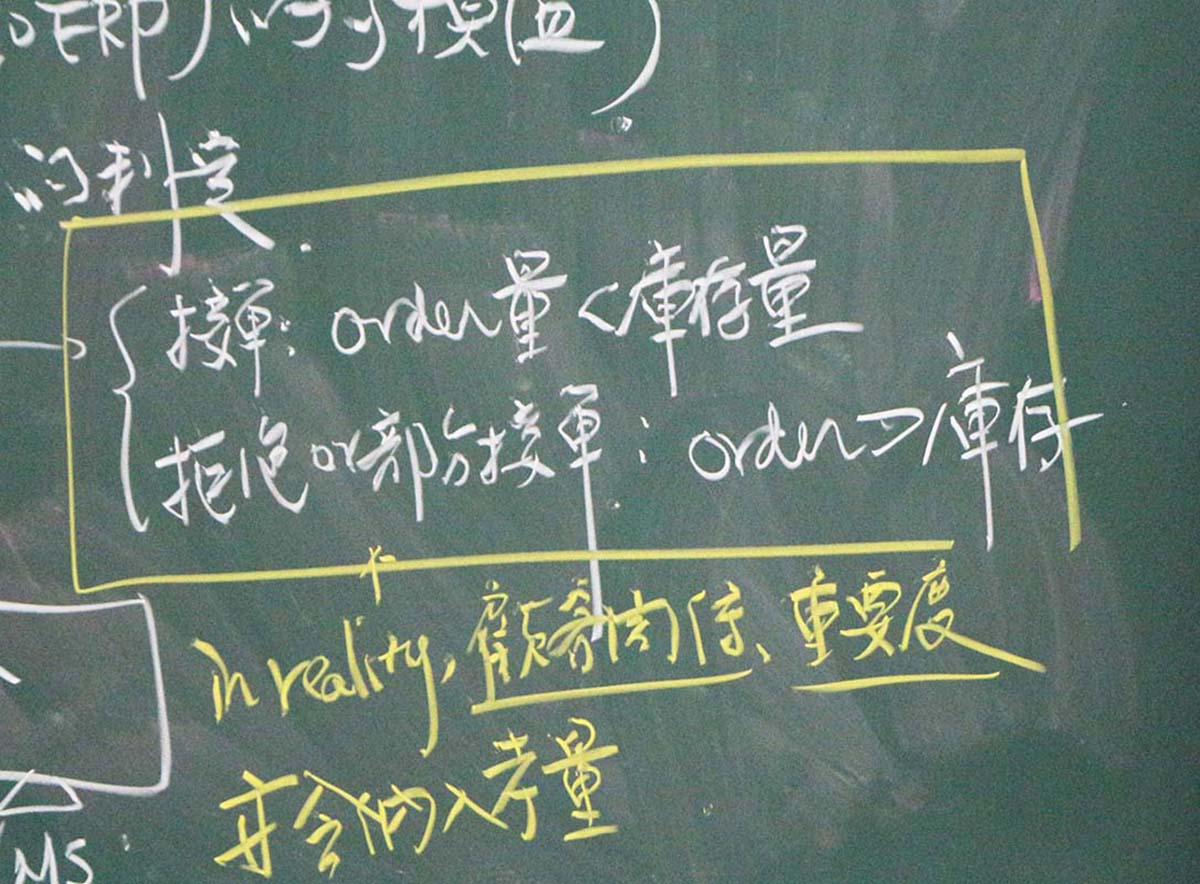 ERP)的模(型)
的判定
接單: order量<庫存量
拒絕or部分接單: order>庫存
in reality, 顧客關係、重要度
亦會納入考量
MS: